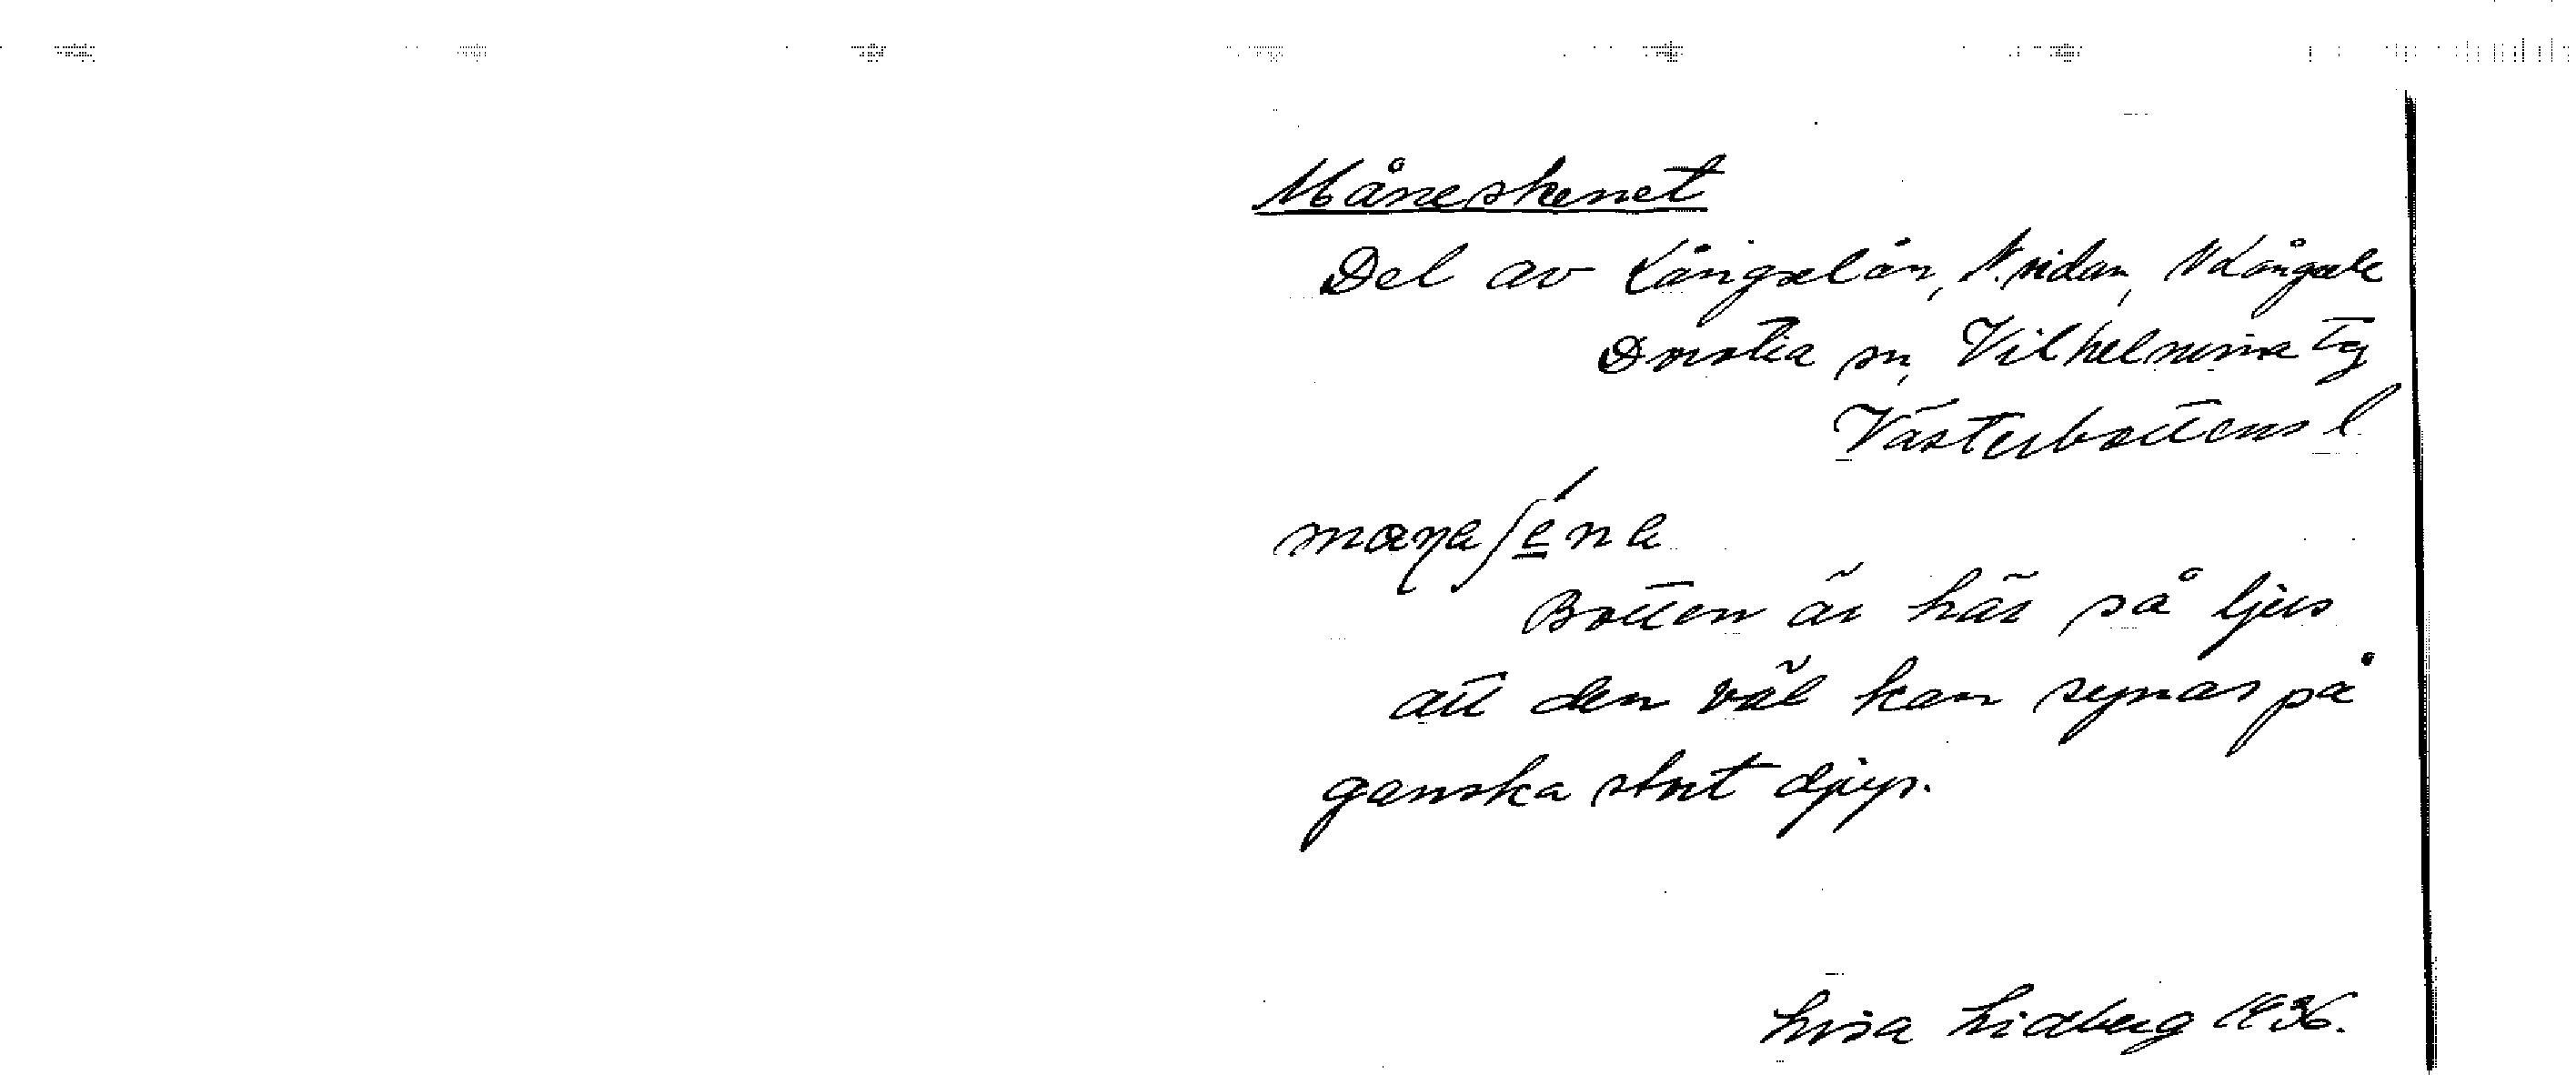 Måneskenet
Del av Långselån, N. sidan, N Långsele
Dorotea sn, Vilhelmina tg
Västerbottens l.
Botten är här så ljus
att den väl kan synas på
ganska stort djup.
Lisa Lidberg 1936.